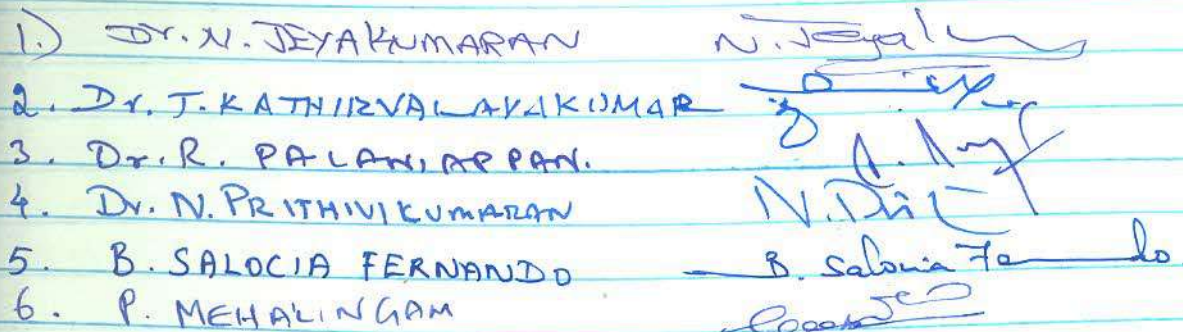 1.) Dr. N. JEYAKUMARAN N. Jeyak
2. Dr. T. KATHIRVALAVAKUMAR
3. Dr. R. PALANIAPPAN.
4. Dr. N. PRITHIVIKUMARAN
5. B. SALOCIA FERNANDO B. Salocia Fernando
6. P. MEHALINGAM